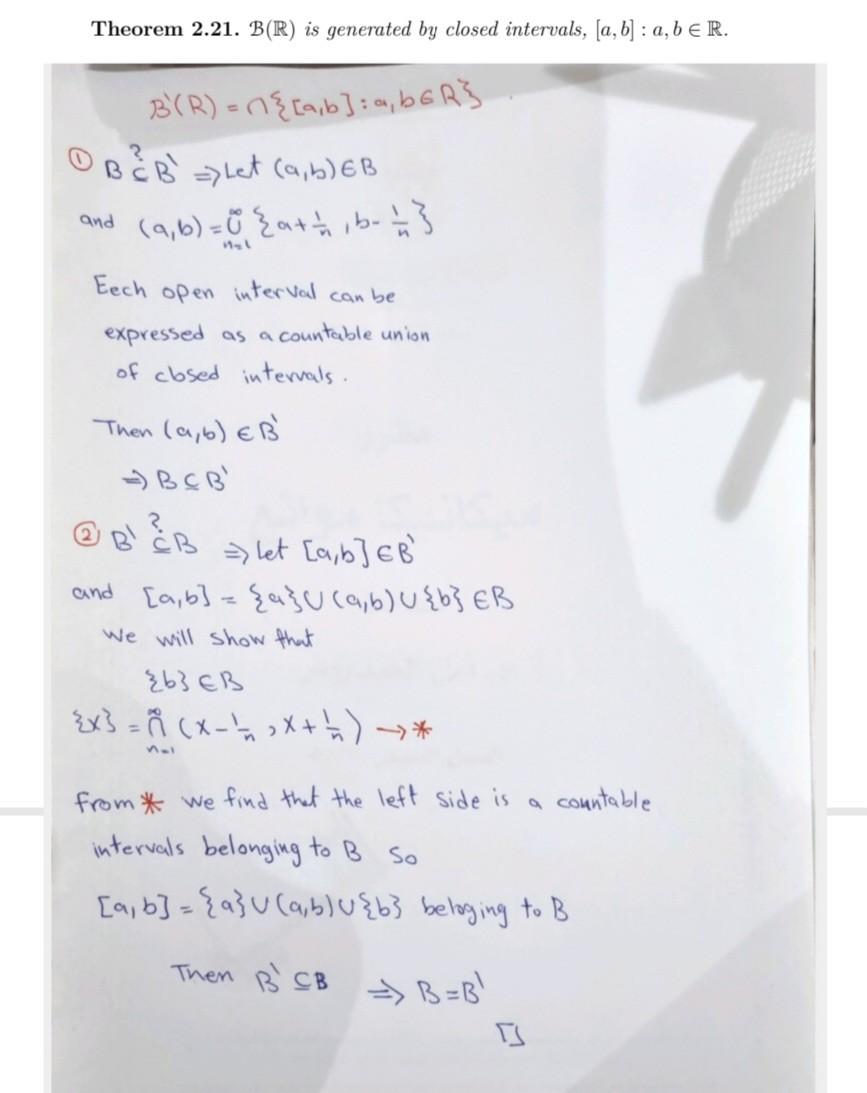 Theorem 2.21. ℬ(ℝ) is generated by closed intervals, [a, b] : a, b ∈ ℝ.
B`(R) = ∩{[a,b]: a,b∈R}
① B ⊆? B` ⇒ Let (a,b) ∈ B
and (a,b) = ∪_{n=1}^{∞} {a+1/n , b-1/n}
Eech open interval can be
expressed as a countable union
of closed intervals.
Then (a,b) ∈ B`
⇒ B ⊆ B`
② B` ⊆? B ⇒ let [a,b] ∈ B`
and [a,b] = {a} ∪ (a,b) ∪ {b} ∈ B
We will show that
{b} ∈ B
{x} = ∩_{n=1}^{∞} (x-1/n , x+1/n) → *
from * we find that the left side is a countable
intervals belonging to B so
[a,b] = {a} ∪ (a,b) ∪ {b} beloging to B
Then B` ⊆ B ⇒ B = B`